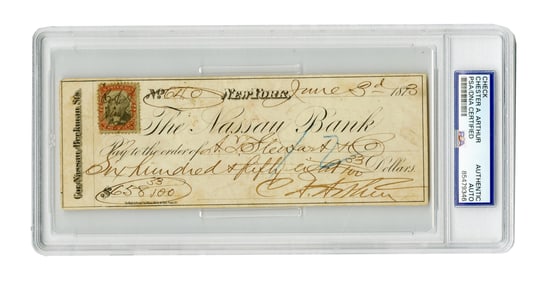 No. 640 New-York, June 3d 1873
The Nassau Bank
Pay to the order of A T Stewart & Co
Six hundred & fifty eight 33/100 Dollars
$658 33/100 C A Arthur
Cor. Nassau & Beekman Sts.
CHECK
CHESTER A. ARTHUR
PSA/DNA CERTIFIED
PSA
AUTHENTIC
AUTO
85479346